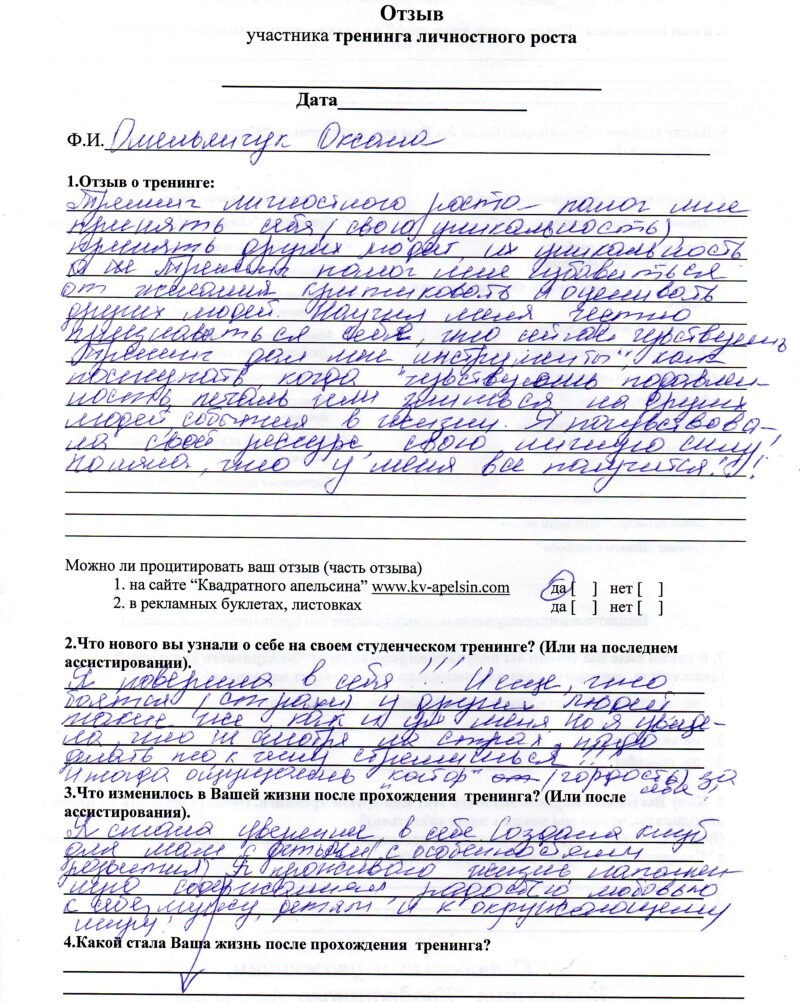 Отзыв
участника тренинга личностного роста
Дата
Ф.И. Омельничук Оксана
1.Отзыв о тренинге:
Тренинг личностного роста – помог мне
принять себя (свою уникальность)
принять других людей их уникальность
Тренинг помог мне избавиться
от желания критиковать и оценивать
других людей. Научил меня честно
признаваться себе, что сейчас чувствуешь
Тренинг дал мне "инструменты", как
поступать когда чувствуешь подавлен-
ность, печаль или злишься на других
людей события в жизни. Я почувствова-
ла свой ресурс свою личную силу!
Поняла, что у меня все получится!
Можно ли процитировать ваш отзыв (часть отзыва)
1. на сайте “Квадратного апельсина” www.kv-apelsin.com да [ ] нет [ ]
2. в рекламных буклетах, листовках да [ ] нет [ ]
2.Что нового вы узнали о себе на своем студенческом тренинге? (Или на последнем
ассистировании).
Я поверила в себя!!! И еще, что
боятся (страхи) у других людей
такие же как и у меня но я увиде-
ла, что не смотря на страх, надо
делать то к чему стремишься!!!
Иногда ощущаешь "костёр" (гордость) за
себя!
3.Что изменилось в Вашей жизни после прохождения тренинга? (Или после
ассистирования).
Я стала уверенней в себе создала клуб
для мам с детьми (с особенностями
развития) Я проживаю жизнь наполнен-
содержанием радостью любовью
к себе мужу, детям и к окружающему
миру!
4.Какой стала Ваша жизнь после прохождения тренинга?